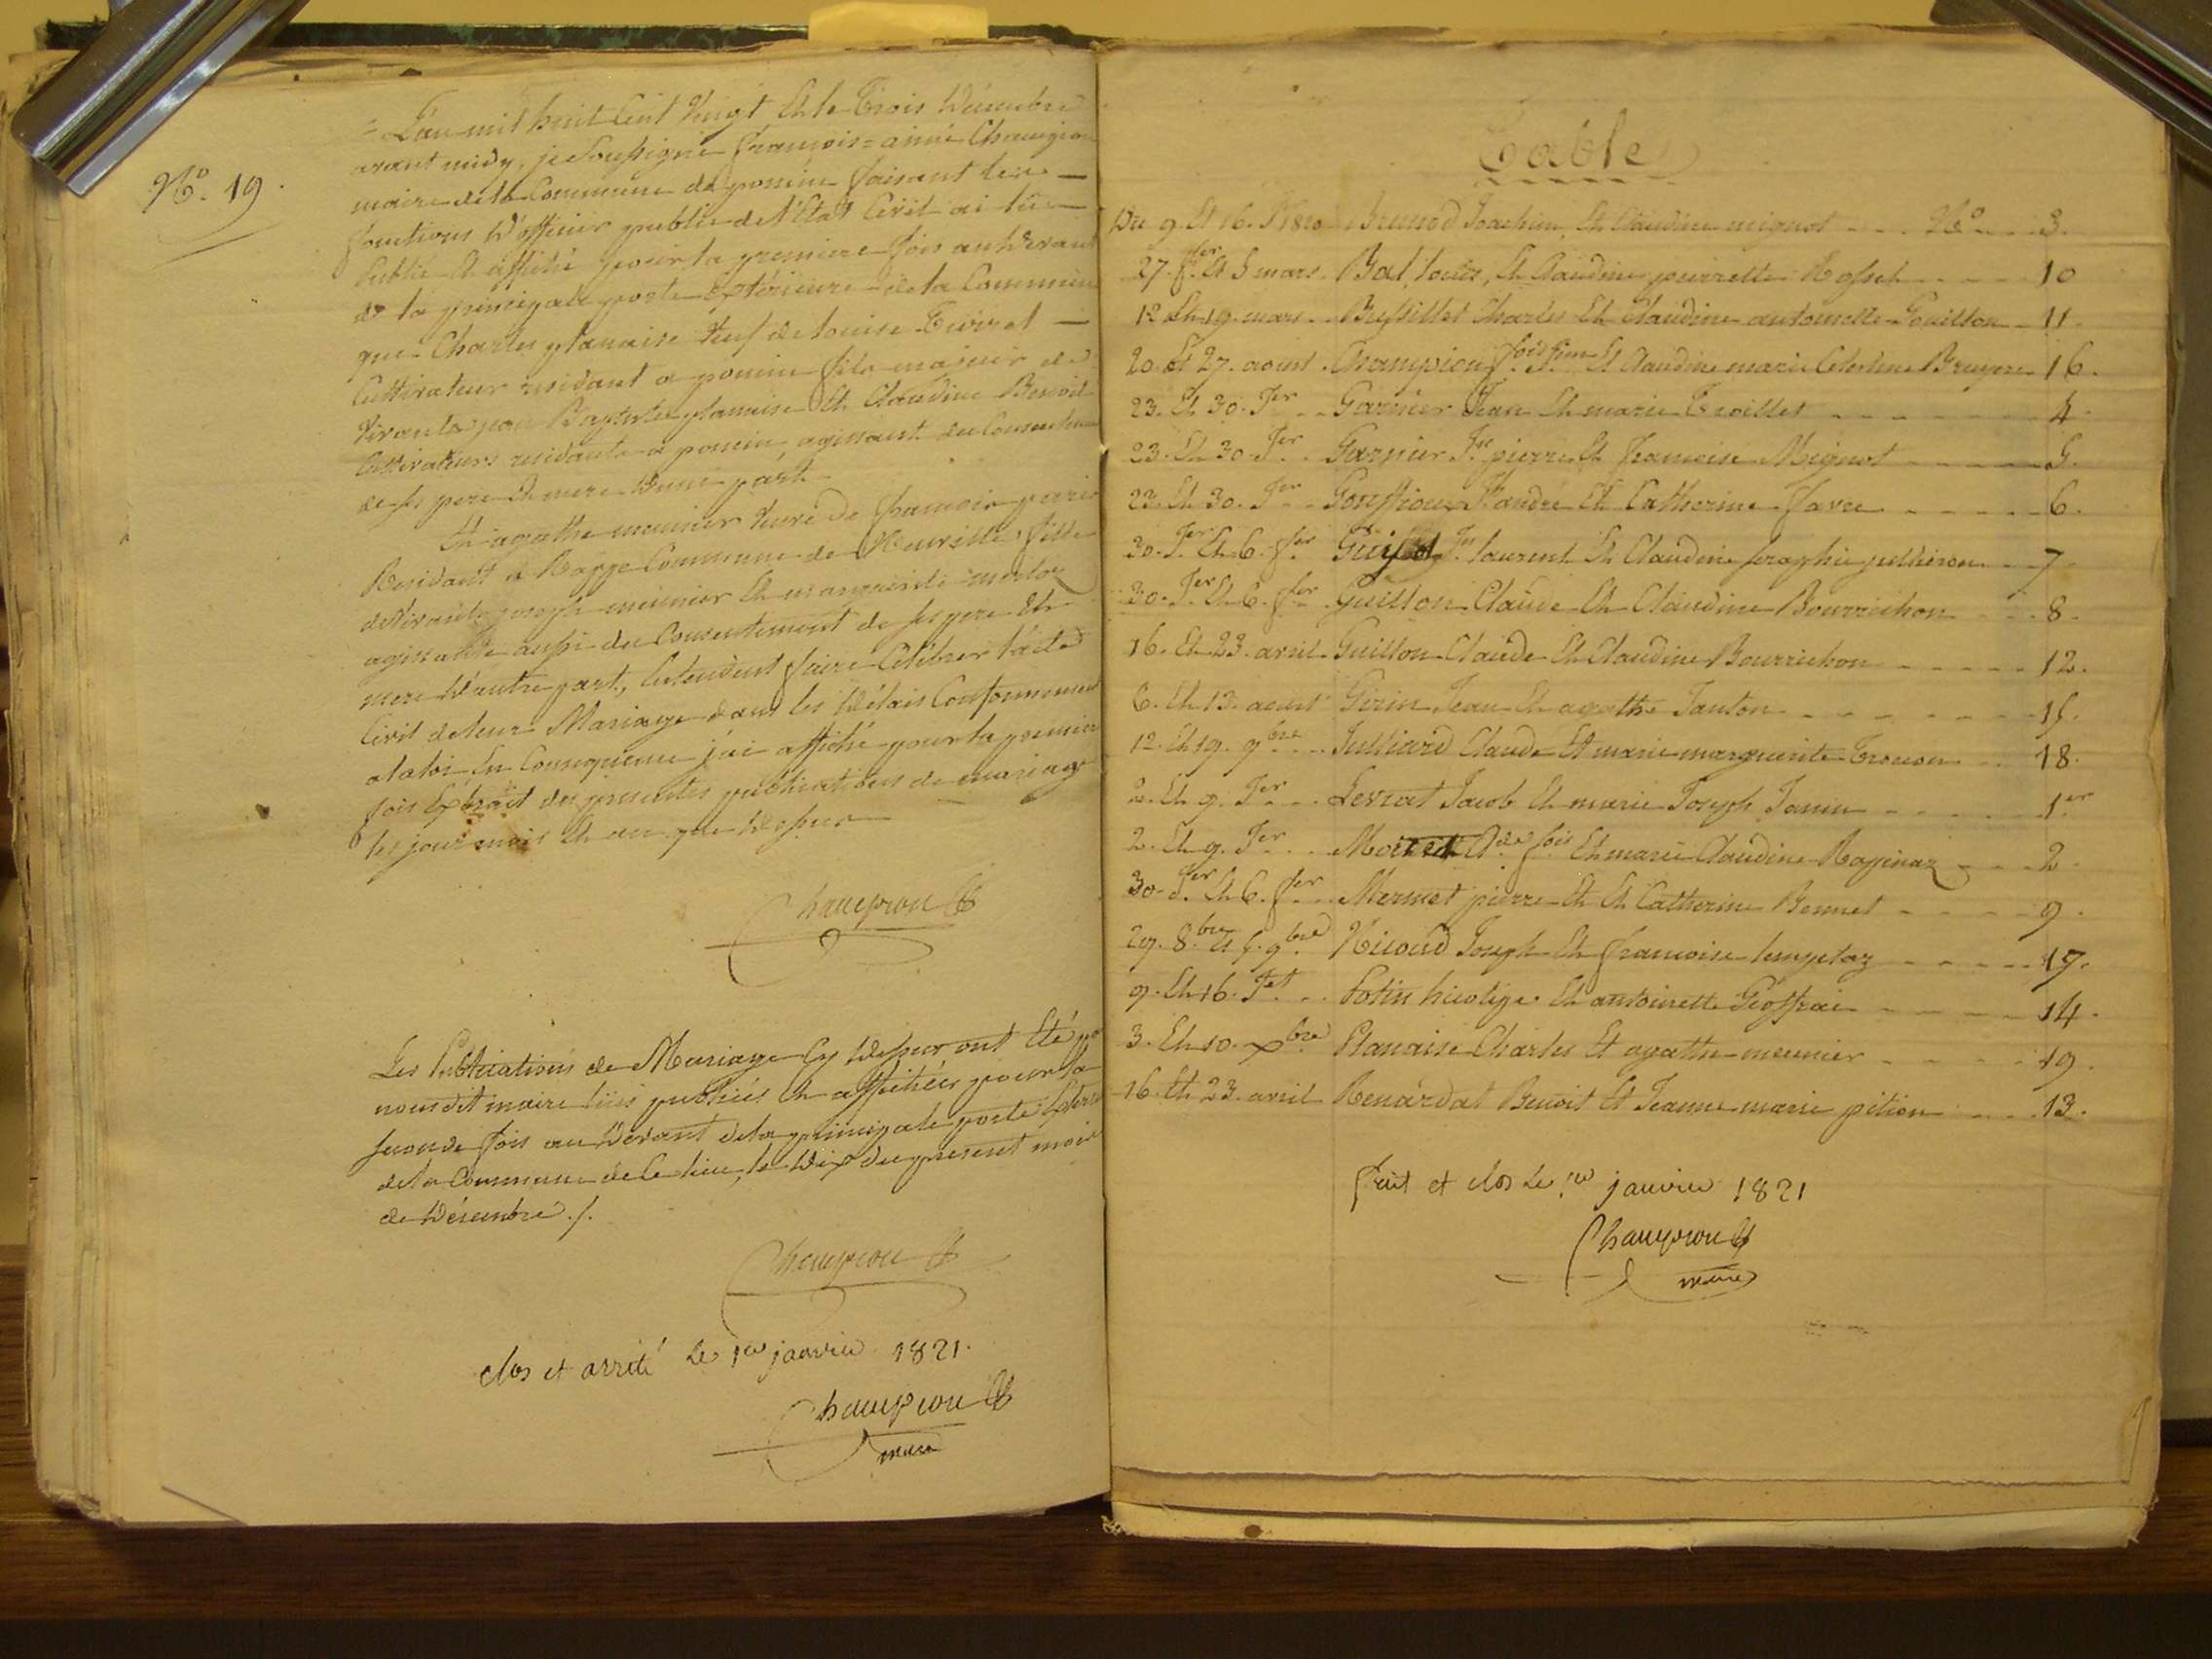 N.o 19.
= L'an mil huit Cent Vingt Et le Trois Décembre
avant midy, je Soussigné françois = aimé Champion
maire de la Commune de poncin faisant les
fonctions d'officier public de l'Etat Civil ai lû
Publié Et affiché pour la premiere fois au devant
de la principale porte Extérieure de la Commune
que Charles planaise Veuf de louise
Cultivateur residant a poncin fils majeur de
Vivants jean Baptiste planaise Et Claudine Benoit
Cultivateurs residants a poncin, agissant du Consentement
de ses pere Et mere d'une part
Et agathe meunier Veuve de francois
Residant a Commune de Neuville fille
de Vivants joseph meunier Et marguerite
agissante aussi du Consentement de ses pere Et
mere d'autre part, Entendent faire Célébrer l'acte
Civil de leur Mariage dans les délais Conformement
a la loi En Consequence j'ai affiché pour la premiere
fois Extrait des presentes publications de mariage
les jour mois Et an que dessus
Champion
Les Publications de Mariage Cy dessus ont Eté par
nous dit maire lües publiées Et affichées pour la
seconde fois au devant de la principale porte
de la Commune de Ce lieu, le dix du present mois
de décembre ./.
Champion
clos et arreté le 1er janvier 1821.
Champion
maire
Table
Du 9. Et 16. Brunod Joachim, Et Claudine mignot N.o 3.
27. fer Et 5 mars. Bal, louis, Et Claudine pierrette 10
12 Et 19. mars. Bussillet Charles Et Claudine antoinette Gouillon 11.
20. Et 27. aout. Champion Et Claudine marie Celestine Bruyere 16.
23. Et 30. Jer Garnier Jean Et marie Troillet 4.
23. Et 30. Jer Garnier pierre Et francoise Mignot 5.
23. Et 30. Jer andré Et Catherine favre 6.
30. Jer Et 6. fer laurent Et Claudine 7
30. Jer Et 6. fer Guillon Claude Et Claudine Bourrichon 8.
16. Et 23. avril Guillon Claude Et Claudine Bourrichon 12.
6. Et 13. aout Girin Jean Et agathe Janton 15.
12. Et 19. 9bre Julliard Claude Et marie marguerite 18.
2. Et 9. Jer Levrat Jacob Et marie Joseph 1er
2. Et 9. Jer Et marie Claudine 2
30. Jer Et 6. fer Mermet pierre Et Et Catherine Bonnet 9.
29. 8bre Et 5. 9bre Nicoud Joseph Et francoise 17.
9. Et 16. Jet Et antoinette 14.
3. Et 10. Xbre Planaise Charles Et agathe meunier 19.
16. Et 23. avril Renardat Benoit Et Jeanne marie pition 13.
fait et clos le 1er janvier 1821
Champion
maire